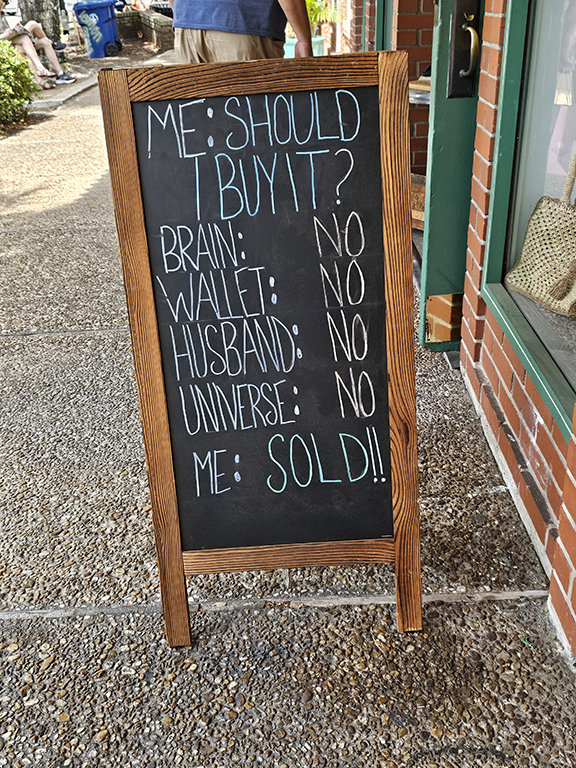 ME: SHOULD
I BUY IT?
BRAIN: NO
WALLET: NO
HUSBAND: NO
UNIVERSE: NO
ME: SOLD!!